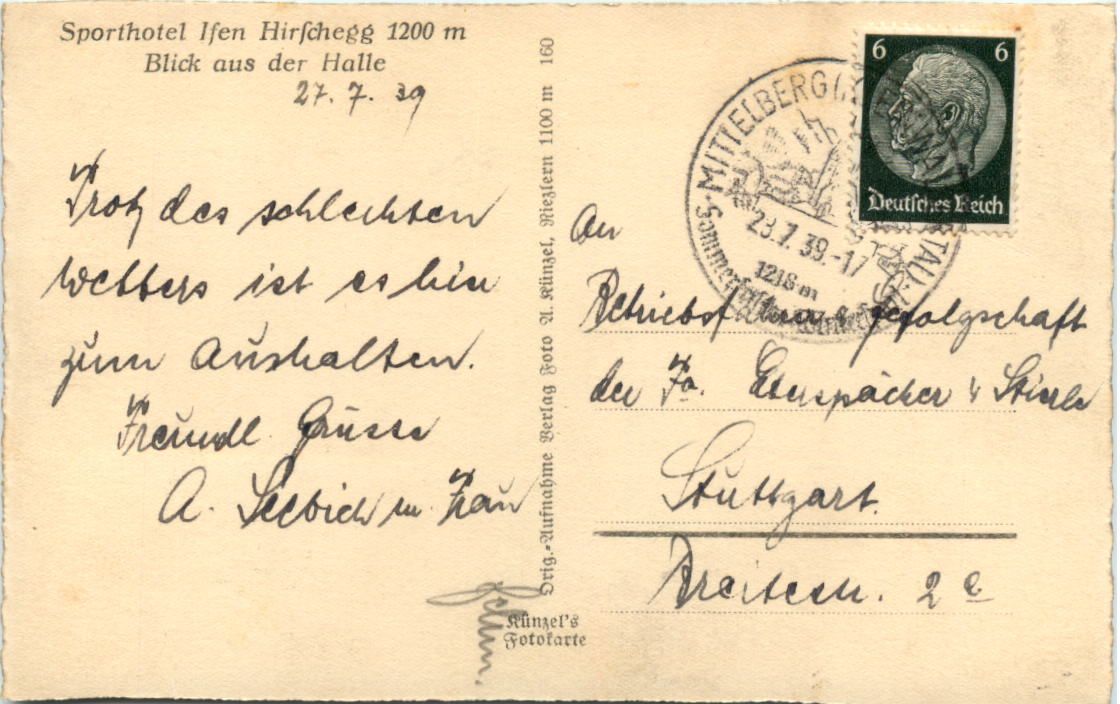 Sporthotel Ifen Hirſchegg 1200 m
Blick aus der Halle
27. 7. 39
Trotz des schlechten
Wetters ist es hier
zum Aushalten.
Freundl. Grüsse
A. Seebich m. Frau
Orig.-Aufnahme Verlag Foto A. Künzel, Riezlern 1100 m 160
Künzel's
Fotokarte
6 6
Deutſches Reich
MITTELBERG
28.7.39.-17
1218 m
An
Betriebsführer & Gefolgschaft
der Fa. Eberspächer & Stierle
Stuttgart.
Breitestr. 2